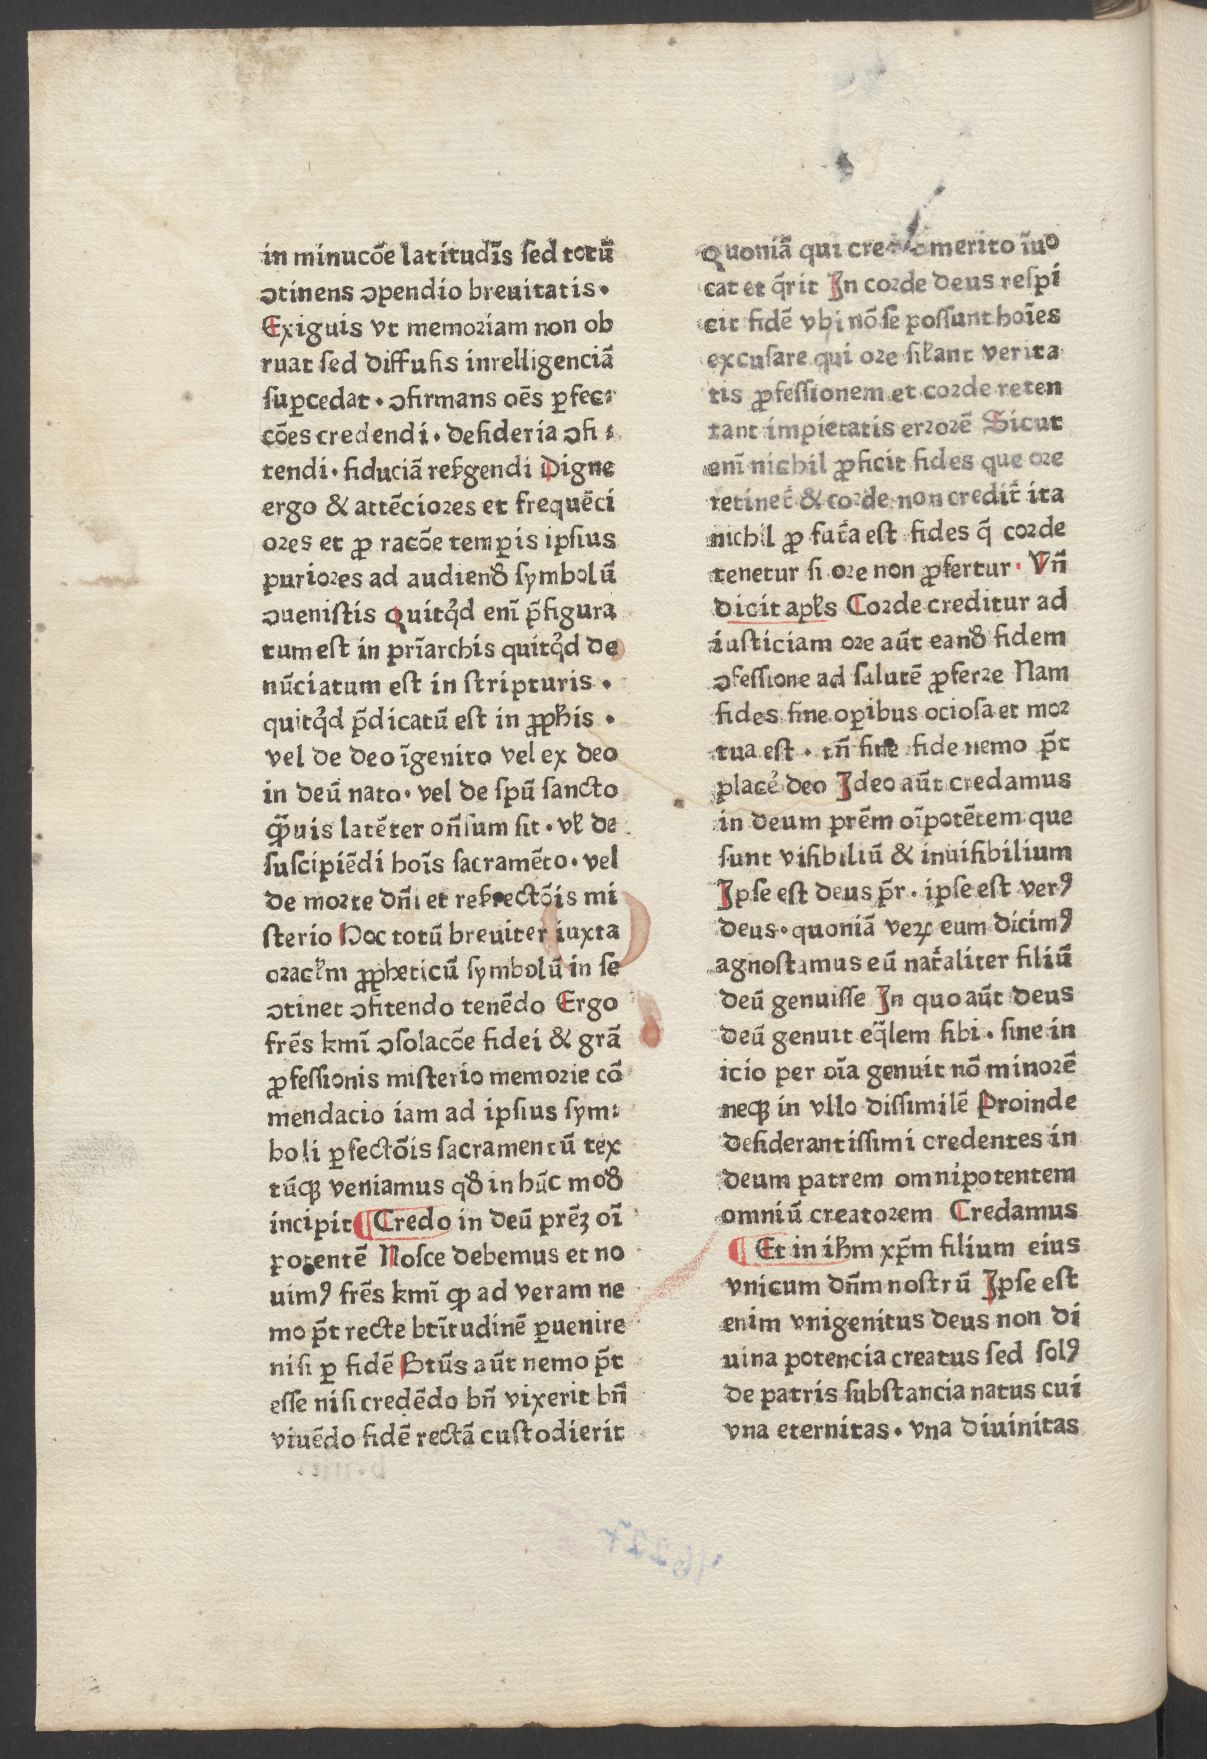 in minucōe latitudīs sed totū
ↄtinens ↄpendio breuitatis·
Exiguis vt memoriam non ob
ruat sed diffusis intelligenciā
suꝑcedat· ↄfirmans oēs ꝑfec⸗
cōes credendi· desideria ↄfi⸗
tendi· fiduciā resꝰgendi Digne
ergo & attēciores et frequēci
ores et ꝓ racōe temꝑis ipsius
puriores ad audiendꝰ symbolū
ↄuenistis Quitqͥd enī p̄figura
tum est in pr̄iarchis quitqͥd de
nūciatum est in scripturis·
quitqͥd p̄dicatū est in ꝓpħis·
vel de deo īgenito vel ex deo
in deū nato· vel de spū sancto
ꝙ̄uis latēter on̄sum sit· vł de
suscipiēdi hoīs sacramēto· vel
de morte dn̄i et resꝰrectōis mi
sterio Hoc totū breuiter iuxta
oracłm ꝓpheticū symbolū in se
ↄtinet ↄfitendo tenēdo Ergo
frēs kmī ↄsolacōe fidei & grā
ꝓfessionis misterio memorie cō
mendacio iam ad ipsius sym⸗
boli ꝑfectōis sacramentū tex
tūꝙ veniamus qđ in hūc mođ
incipit ¶ Credo in deū prēꝫ oī
potentē Nosce debemus et no
uimꝰ frēs kmī ꝙ ad veram ne
mo p̄t recte btītudinē ꝑuenire
nisi ꝑ fidē Btūs aūt nemo p̄t
esse nisi credēdo bn̄ vixerit bn̄
viuēdo fidē rectā custodierit
Quoniā qui merito īuo
cat et q̄rit In corde deus respi
cit fidē vbi nō se possunt hoīes
excusare qui ore silant verita
tis ꝓfessionem et corde reten
tant impietatis errorē Sicut
enī nichil ꝓficit fides que ore
retinet̄ & corde non credit̄ ita
nichil ꝓ fut̄a est fides q̄ corde
tenetur si ore non ꝓfertur· Vn̄
dicit apłs Corde creditur ad
iusticiam ore aūt eandꝰ fidem
ↄfessione ad salutē ꝓferre Nam
fides sine oꝑibus ociosa et mor
tua est· tn̄ sine fide nemo p̄t
placeͬ deo Ideo aūt credamus
in deum prēm oīpotētem que
sunt visibiliū & inuisibilium
Ipse est deus pr̄· ipse est verꝰ
deus· quoniā veꝝ eum dicimꝰ
agnoscamus eū nat̄aliter filiū
deū genuisse In quo aūt deus
deū genuit eq̄lem sibi· sine in
icio per oīa genuit nō minorē
neꝙ in vllo dissimilē Proinde
desiderantissimi credentes in
deum patrem omnipotentem
omniū creatorem Credamus
¶ Et in iħm xp̄m filium eius
vnicum dn̄m nostrū Ipse est
enim vnigenitus deus non di
uina potencia creatus sed solꝰ
de patris substancia natus cui
vna eternitas· vna diuinitas